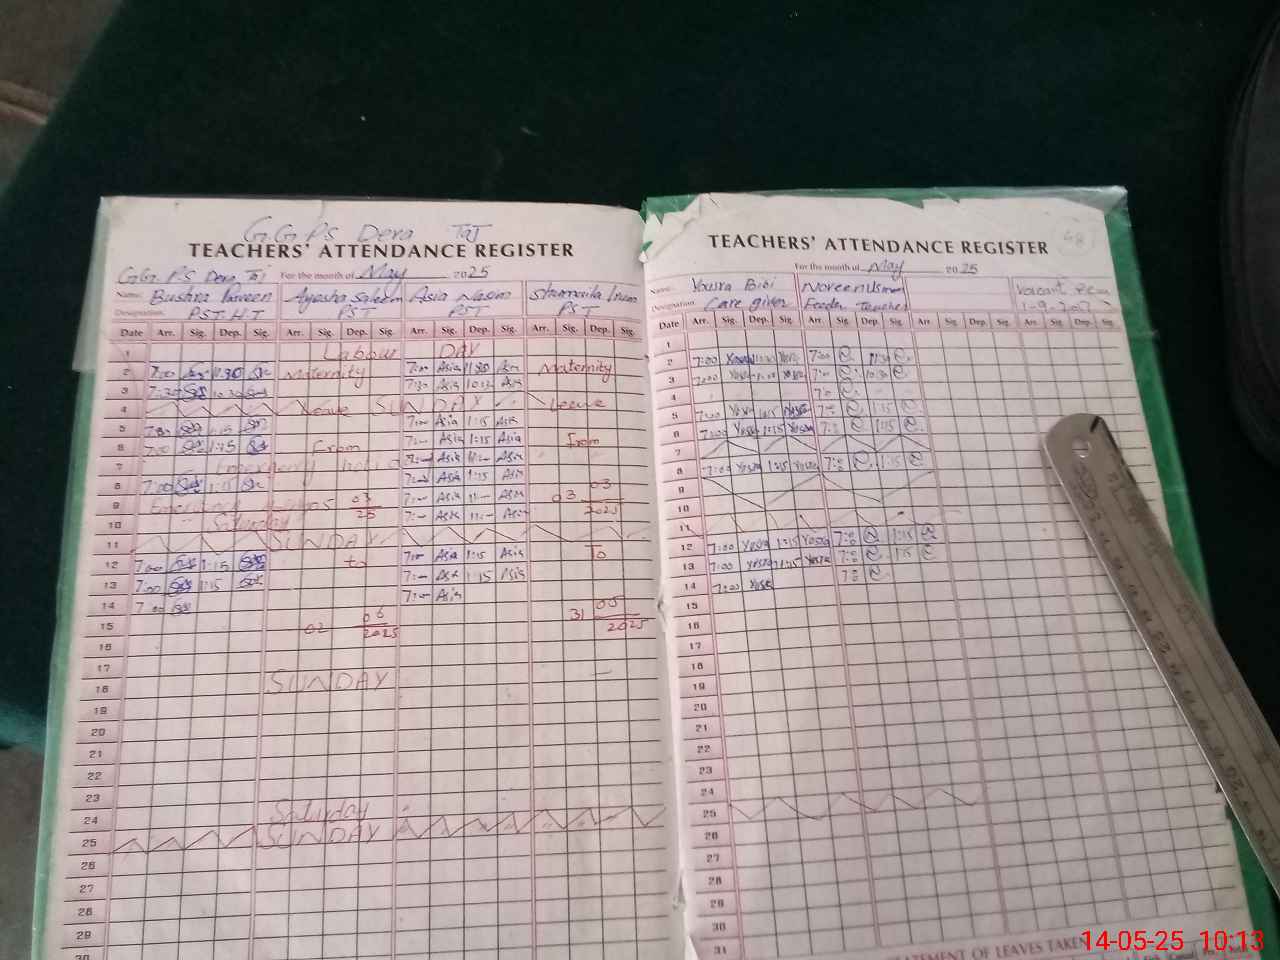 G.G.P.S Dera Taj
TEACHERS' ATTENDANCE REGISTER
G.G.P.S Dera Taj For the month of May 2025
Name: Bushra Parveen Ayesha Saleem Asia Naom Shumaila Inam
Designation: P.S.T. H.T PST PST PST
Date Arr. Sig. Dep. Sig. Arr. Sig. Dep. Sig. Arr. Sig. Dep. Sig. Arr. Sig. Dep. Sig.
1 Labour DAY
2 7:00 11:30 Maternity 7:00 Asia 11:30 Asia Maternity
3 7:30 10:30 7:30 Asia 10:30 Asia
4 Leave SUNDAY Leave
5 7:00 1:15 7:00 Asia 1:15 Asia
6 7:00 1:15 From 7:00 Asia 1:15 Asia From
7 Emergency 7:00 Asia Asia
8 7:00 1:15 7:00 Asia 1:15 Asia
9 Emergency 03 25 7:00 Asia 11:00 Asia 03 03 2025
10 Saturday 7:00 Asia 11:00 Asia
11 SUNDAY
12 7:00 1:15 to 7:00 Asia 1:15 Asia To
13 7:00 1:15 7:00 Asia 1:15 Asia
14 7:00 7:00 Asia
15 02 06 2025 31 05 2025
16
17
18 SUNDAY
19
20
21
22
23
24 Saturday
25 SUNDAY
26
27
28
29
30
TEACHERS' ATTENDANCE REGISTER
68
For the month of May 2025
Name: Yousra Bibi Noreen Usman Vacant
Care giver Feeder teacher 1-9-
Date Arr. Sig. Dep. Sig. Arr. Sig. Dep. Sig. Arr. Sig. Dep. Sig. Arr. Sig. Dep. Sig.
1
2 7:00 Yosra 11:30 Yosra 7:00 11:30
3 7:00 Yosra Yosra 7:00 10:30
4 7:00
5 7:00 Yosra 1:15 Yosra 7:00 1:15
6 7:00 Yosra 1:15 Yosra 7:00 1:15
7
8 7:00 Yosra 1:15 Yosra 7:00 1:15
9
10
11
12 7:00 Yosra 1:15 Yosra 7:00 1:15
13 7:00 Yosra 1:15 Yosra 7:00 1:15
14 7:00 Yosra 7:00
15
16
17
18
19
20
21
22
23
24
25
26
27
28
29
30
31
STATEMENT OF LEAVES TAKEN
14-05-25 10:13